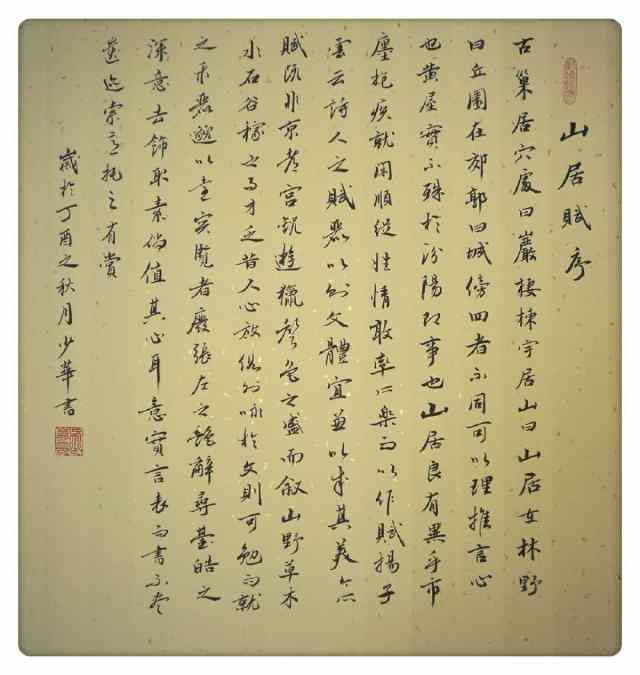 山居賦序
古巢居穴處曰巖棲棟宇居山曰山居在林野
曰丘園在郊郭曰城傍四者不同可以理推言心
也黃屋實不殊於汾陽即事也山居良有異乎市
廛抱疾就閑順從性情敢率所樂而以作賦揚子
雲云詩人之賦麗以則文體宜兼以成其美今所
賦既非京都宮觀遊獵聲色之盛而叙山野草木
水石谷稼之事才乏昔人心放俗外咏於文則可勉而就
之求麗邈以遠矣覽者廢張左之艷辭尋臺皓之
深意去飾取素儻值其心耳意實言表而書不盡
遺迹索意托之有賞
歲於丁酉之秋月少華書